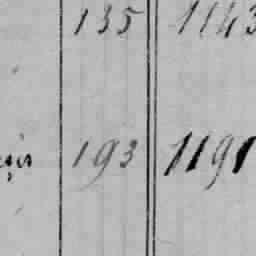 135 1143
193 1191